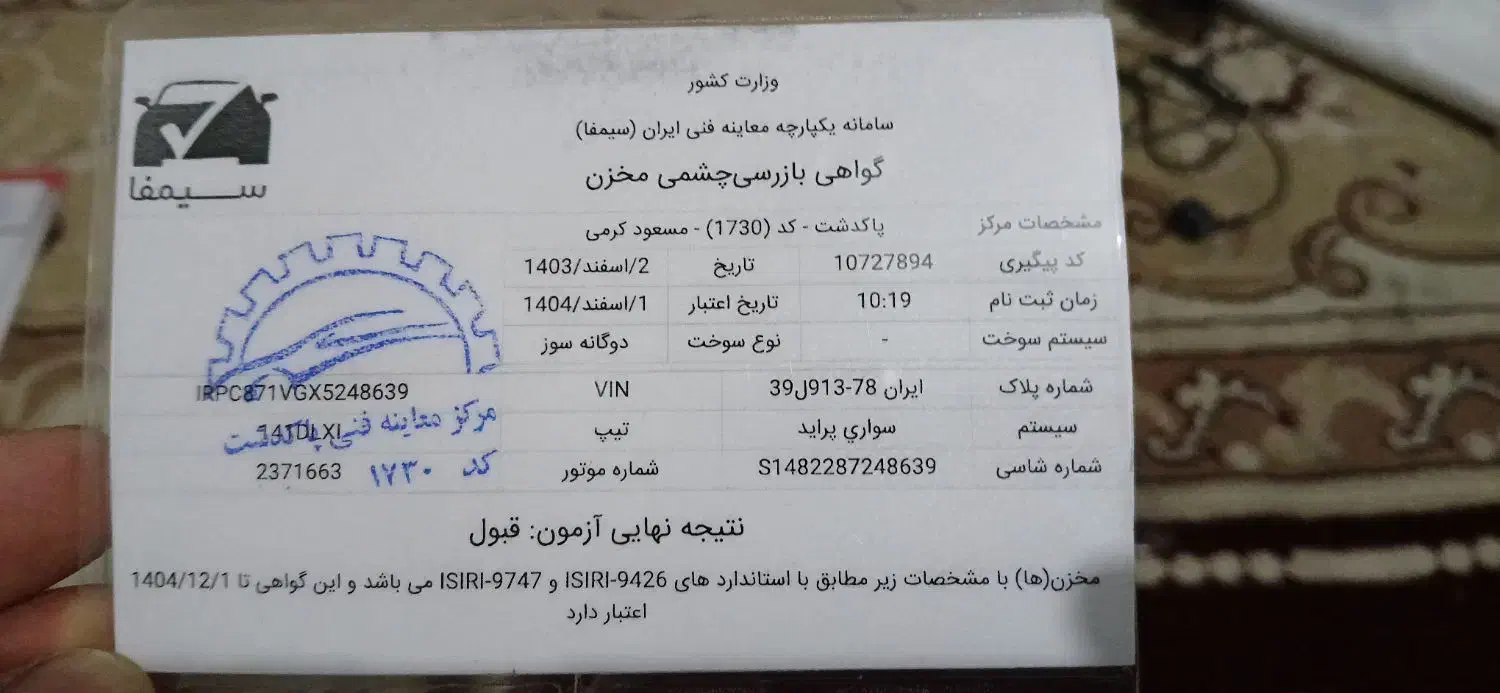 وزارت کشور
سامانه یکپارچه معاینه فنی ایران (سیمفا)
گواهی بازرسی‌چشمی مخزن
سیمفا
مشخصات مرکز پاکدشت - کد (1730) - مسعود کرمی
کد پیگیری 10727894 تاریخ 2/اسفند/1403
زمان ثبت نام 10:19 تاریخ اعتبار 1/اسفند/1404
سیستم سوخت - نوع سوخت دوگانه سوز
شماره پلاک ایران 78-913ل39 VIN IRPC871VGX5248639
سیستم سواري پراید تیپ 141DLXI
شماره شاسی S1482287248639 شماره موتور 2371663
مرکز معاینه فنی پاکدشت
کد ۱۷۳۰
نتیجه نهایی آزمون: قبول
مخزن(ها) با مشخصات زیر مطابق با استاندارد های ISIRI-9426 و ISIRI-9747 می باشد و این گواهی تا 1404/12/1
اعتبار دارد